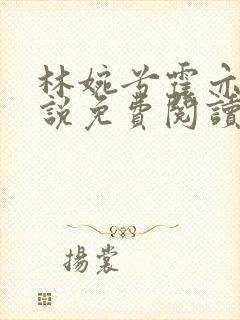 林婉兮霍亦
說免費閱讀
揚裳